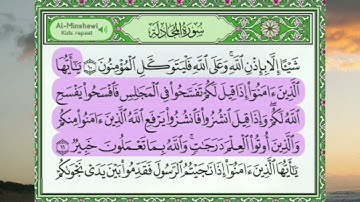 Al-Minshawi
Kids repeat
سورة المجادلة
شَيْـًٔا إِلَّا بِإِذْنِ ٱللَّهِ ۚ وَعَلَى ٱللَّهِ فَلْيَتَوَكَّلِ ٱلْمُؤْمِنُونَ ١٠ يَـٰٓأَيُّهَا
ٱلَّذِينَ ءَامَنُوٓا۟ إِذَا قِيلَ لَكُمْ تَفَسَّحُوا۟ فِى ٱلْمَجَـٰلِسِ فَٱفْسَحُوا۟ يَفْسَحِ
ٱللَّهُ لَكُمْ ۖ وَإِذَا قِيلَ ٱنشُزُوا۟ فَٱنشُزُوا۟ يَرْفَعِ ٱللَّهُ ٱلَّذِينَ ءَامَنُوا۟ مِنكُمْ
وَٱلَّذِينَ أُوتُوا۟ ٱلْعِلْمَ دَرَجَـٰتٍ ۚ وَٱللَّهُ بِمَا تَعْمَلُونَ خَبِيرٌ ١١
يَـٰٓأَيُّهَا ٱلَّذِينَ ءَامَنُوٓا۟ إِذَا نَـٰجَيْتُمُ ٱلرَّسُولَ فَقَدِّمُوا۟ بَيْنَ يَدَىْ نَجْوَىٰكُمْ